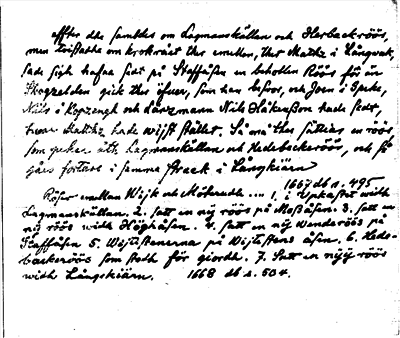 effter dhe samttes om Lagmanskällen och Herbackröös,
men tvistatta om krokrået ther emellan, ther Mattz i Långwak,
sade sigh hafwa sedt på Staffåsen en behollen Röös för än
Skogzelden gick ther öfwer, som han beser, och Joen i Speke,
Nils i Kopzengh och Länzmann Nils Håkansson hade sedt,
hwar Mattz hade wijst stället. Så må ther sättias en röös,
som pekar åth Lagmanskällan och Hedebeckeröös, och så
gårs fortare i samma Sträck i Långkiärn
1667 db s. 495
Röser emellan Wijk och Möherudh ... 1. i Upkastet widh
Lagmanskällan. 2. satt en ny röös på Moßåsen. 3. satt en
ny röös widh Höghåsen. 4. satt en ny wenderöös på
Staffåsen 5. Wijtistenerna på Wijtistens åsen. 6. Hede-
backeröös som stodh för giordt. 7. Satt en nyy röös
widh Långekiärn. 1668 db s. 504.